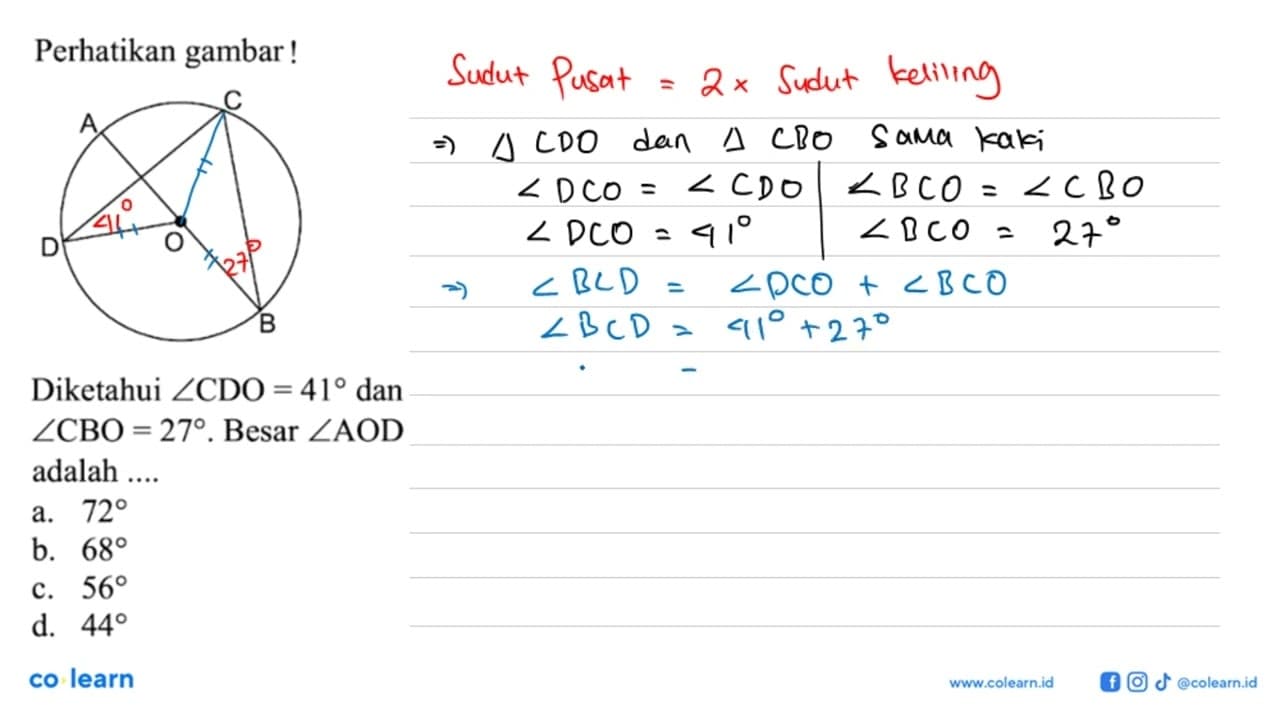 Perhatikan gambar!
A
C
D
O
B
41°
27°
Diketahui ∠CDO = 41° dan
∠CBO = 27°. Besar ∠AOD
adalah ....
a. 72°
b. 68°
c. 56°
d. 44°
Sudut Pusat = 2 × Sudut keliling
⇒ Δ CDO dan Δ CBO Sama kaki
∠DCO = ∠CDO | ∠BCO = ∠CBO
∠DCO = 41° | ∠BCO = 27°
⇒ ∠BCD = ∠DCO + ∠BCO
∠BCD = 41° + 27°
. =
co learn
www.colearn.id
@colearn.id